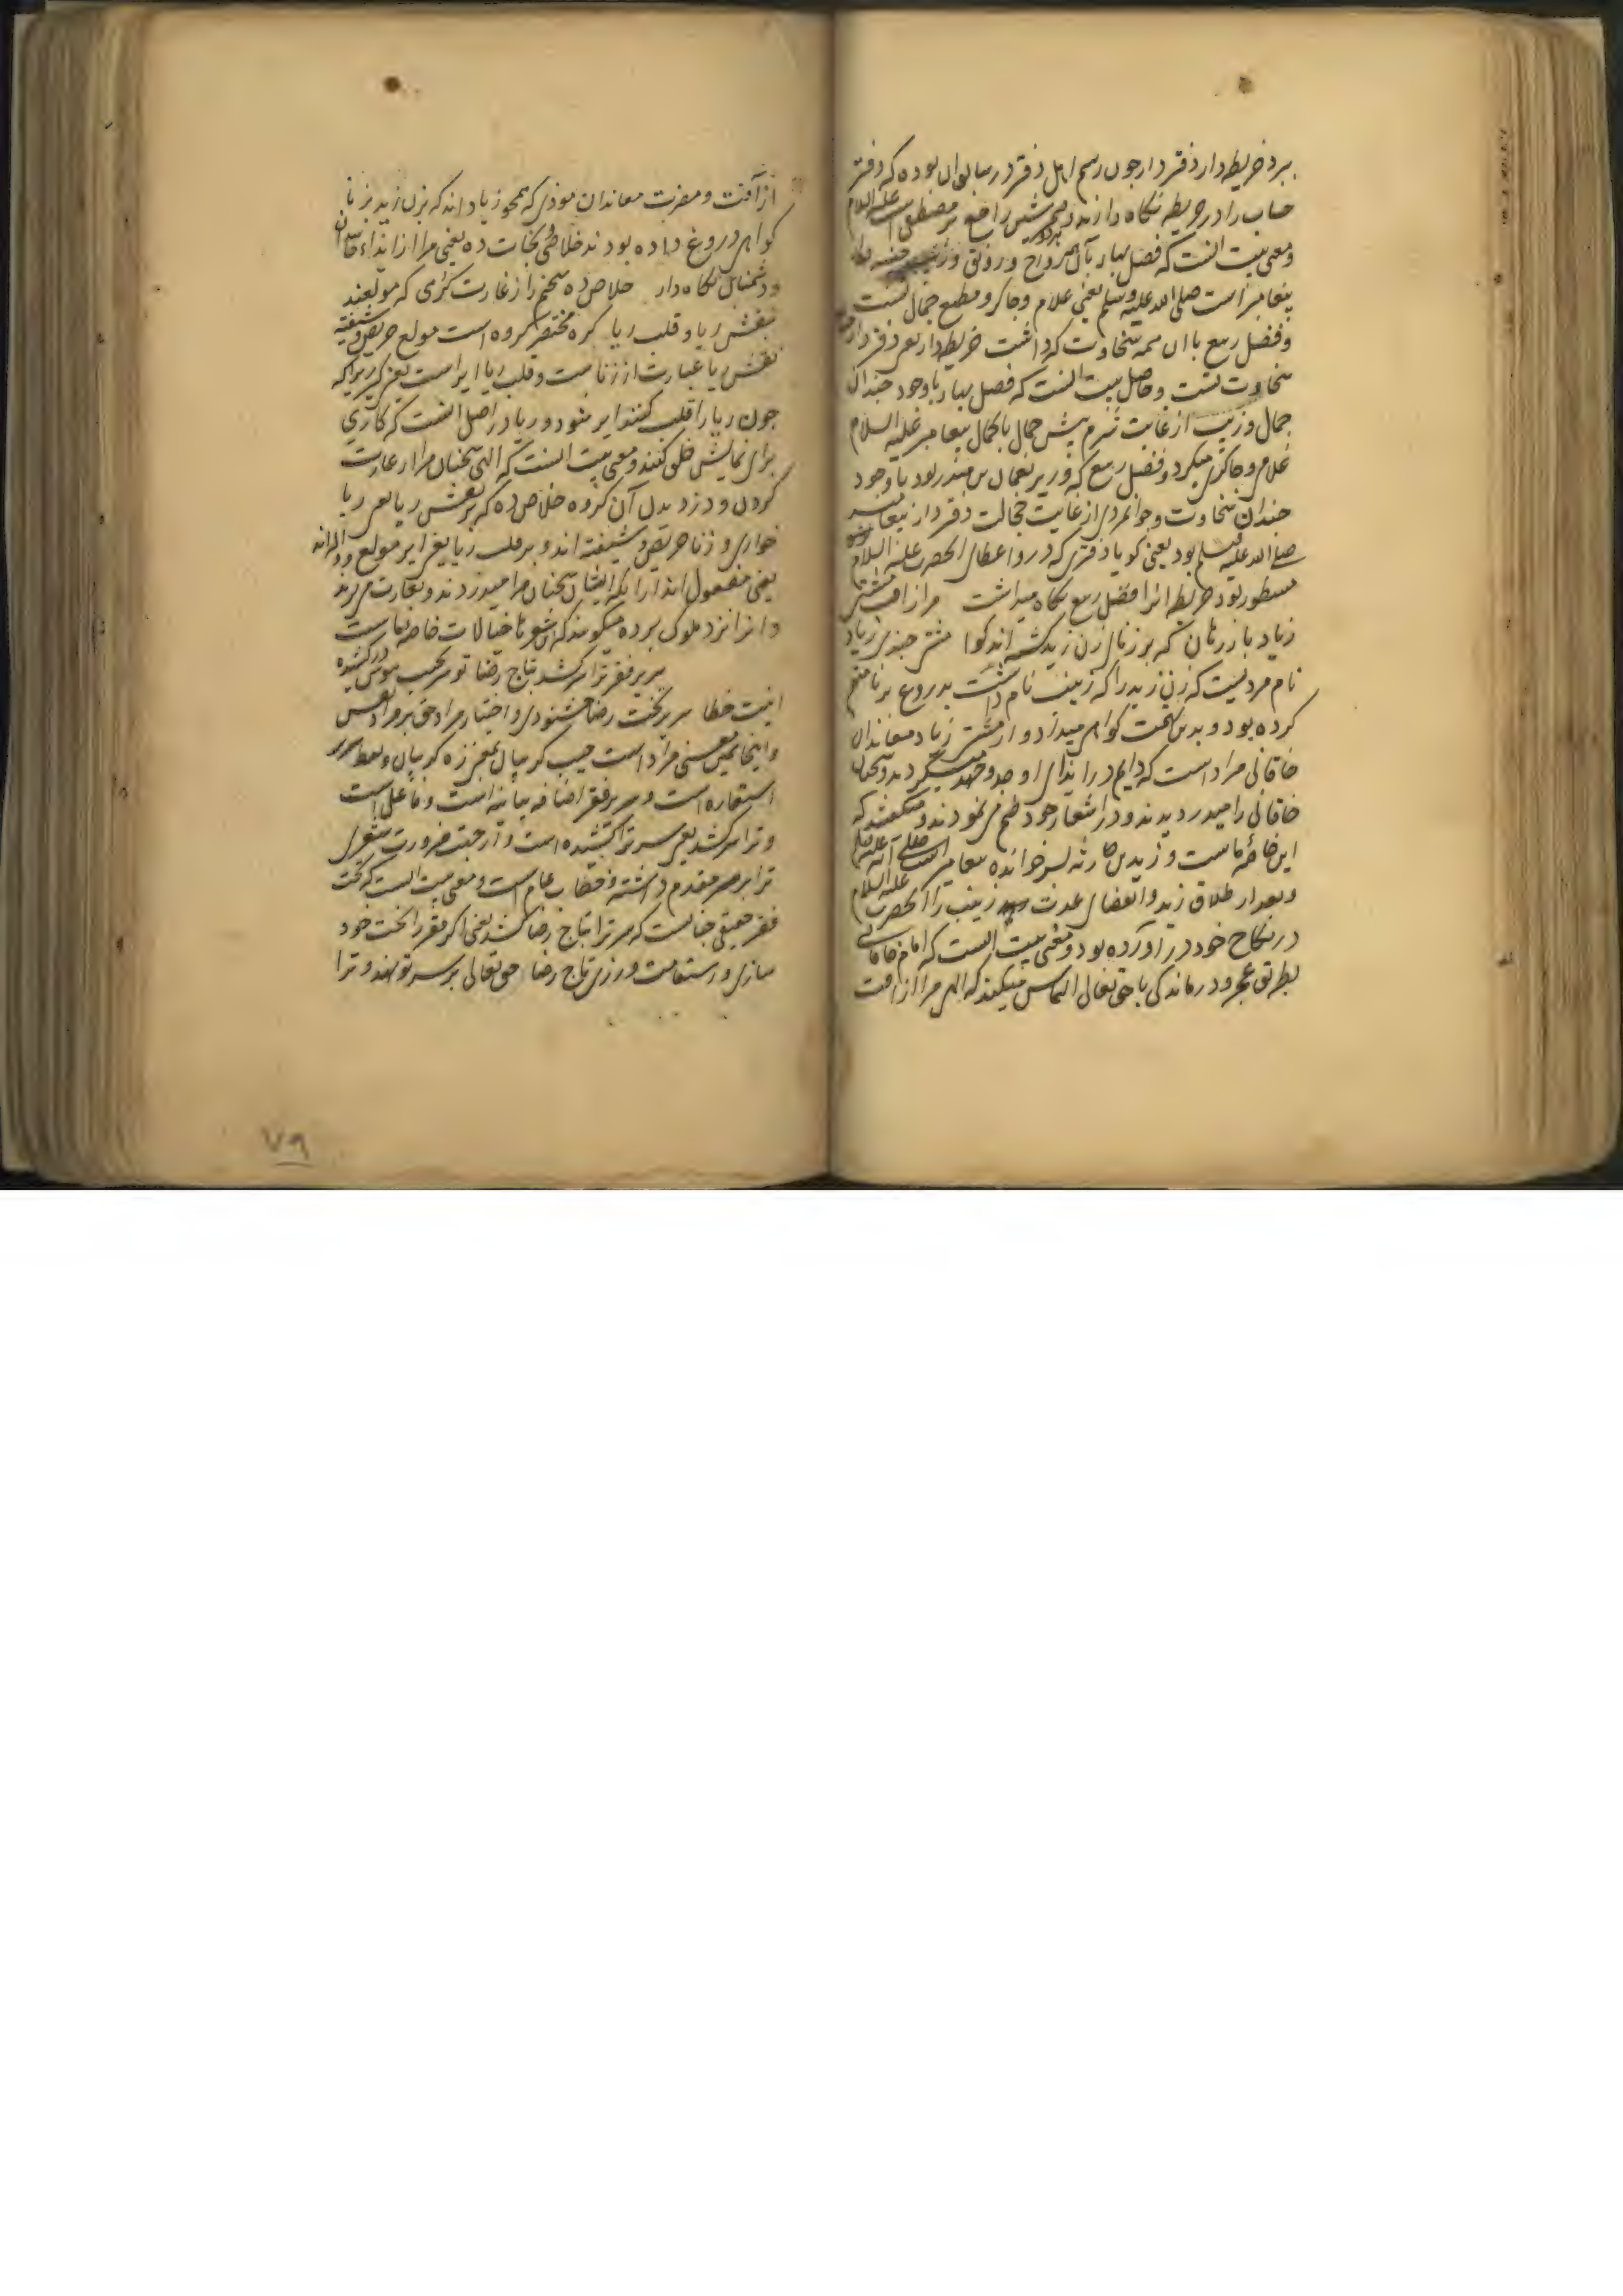 ببرد خریطه دار دفتر دار چون رسم اهل دفتر در سابق ان بوده که دفتر
حساب را در خریطه نگاه دارند و ضمیر شین راجع بر مصطفی است علیه السلام
و معنی بیت انست که فصل بهار بآن همه رواج و رونق و زینت
پیغامبر است صلی الله علیه وسلم یعنی غلام و چاکر و مطیع جمال تست
و فضل ربیع با ان همه سخاوت که داشت خریطه دار یعنی دفتر دار
سخاوت تست و حاصل بیت انست که فصل بهار باوجود چندان
جمال و زینت از غایت شرم پیش جمال باکمال پیغامبر علیه السلام
غلامی و چاکری میکرد و فضل ربیع که وزیر نعمان بن منذر بود باوجود
چندان سخاوت و جوانمردی از غایت خجالت دفتر دار پیغامبر
صلی الله علیه وسلم بود یعنی کویا دفتری که درو اعطای الحضرت علیه السلام
مسطور بود خریطه انرا فضل ربیع نگاه میداشت مرا از افت مشتی
زیاد باز رهان که بر زنای زن زید کشته اند کوا مشتی چندی زیاد
نام مردیست که زن زید را که زینب نام داشت بدروغ بزنا متهم
کرده بود و بدین تهمت کواهی میداد و از مشتی زیاد معاندان
خاقانی مراد است که دایم در ایذای او جد و جهد میکردند و سخنان
خاقانی را میدزدیدند و در اشعار خود طبع می نمودند و میکفتند که
این خاصه ماست و زید بن حارثه پسر خوانده پیغامبر است صلی الله علیه
وبعد از طلاق زید و انقضای عدت زینب را الحضرت علیه السلام
در نکاح خود در آورده بود و معنی بیت انست که امام خاقانی
بطریق عجز و درماندگی با حق تعالی التماس میکند که الهی مرا از افت
از آفت و مضرت معاندان موذی که همچو زیاد اند که بزن زید بزنا
کواهی دروغ داده بودند خلاصی و نجات ده یعنی مرا از ایذاء حاسدان
و دشمنان نگاه دار خلاص ده سخنم را از غارت کری که مولعند
بنقش ریا و قلب ریا کره مختصر کروه است مولع حریص و شیفته
نقش ریا عبارت از زنا ست و قلب ریا ایر است یعنی کیر زیرا که
چون ریا را قلب کنند ایر شود و ریا در اصل انست که کاری
برای نمایش خلق کنند و معنی بیت انست که الهی سخنان مرا از غارت
کردن و دزدیدن آن کروه خلاص ده که بر نقش ریا یعنی ریا
خواری و زنا حریص و شیفته اند و بر قلب ریا یعنی ایر مولع و والهانه
یعنی مفعول اند ازانکه ایشان سخنان مرا میدزدند و بغارت می برند
و انرا نزد ملوک برده میکویند که این شعر یا خیالات خاصه ماست
سریر فقر ترا سر کشد بتاج رضا تو سر بجیب هوس درکشیده
اینت خطا سریر تخت رضا خشنودی و اختیار مراد حق بر مراد نفس
و اینجا همین معنی مراد است جیب کریبان بمعنی زه کریبان و لفظ سریر
استعاره است و سریر فقر اضافه بیانیه است و فاعل است
و ترا سر کشد یعنی سر ترا کشیده است و از جهت ضرورت شعر
ترا بر سر مقدم داشته و خطاب عام است و معنی بیت انست که تخت
فقر حقیقی چنانست که سر ترا بتاج رضا کشد یعنی اکر فقر را تخت خود
سازی و استقامت ورزی تاج رضا حق تعالی بر سر تو نهد و ترا
۷۹